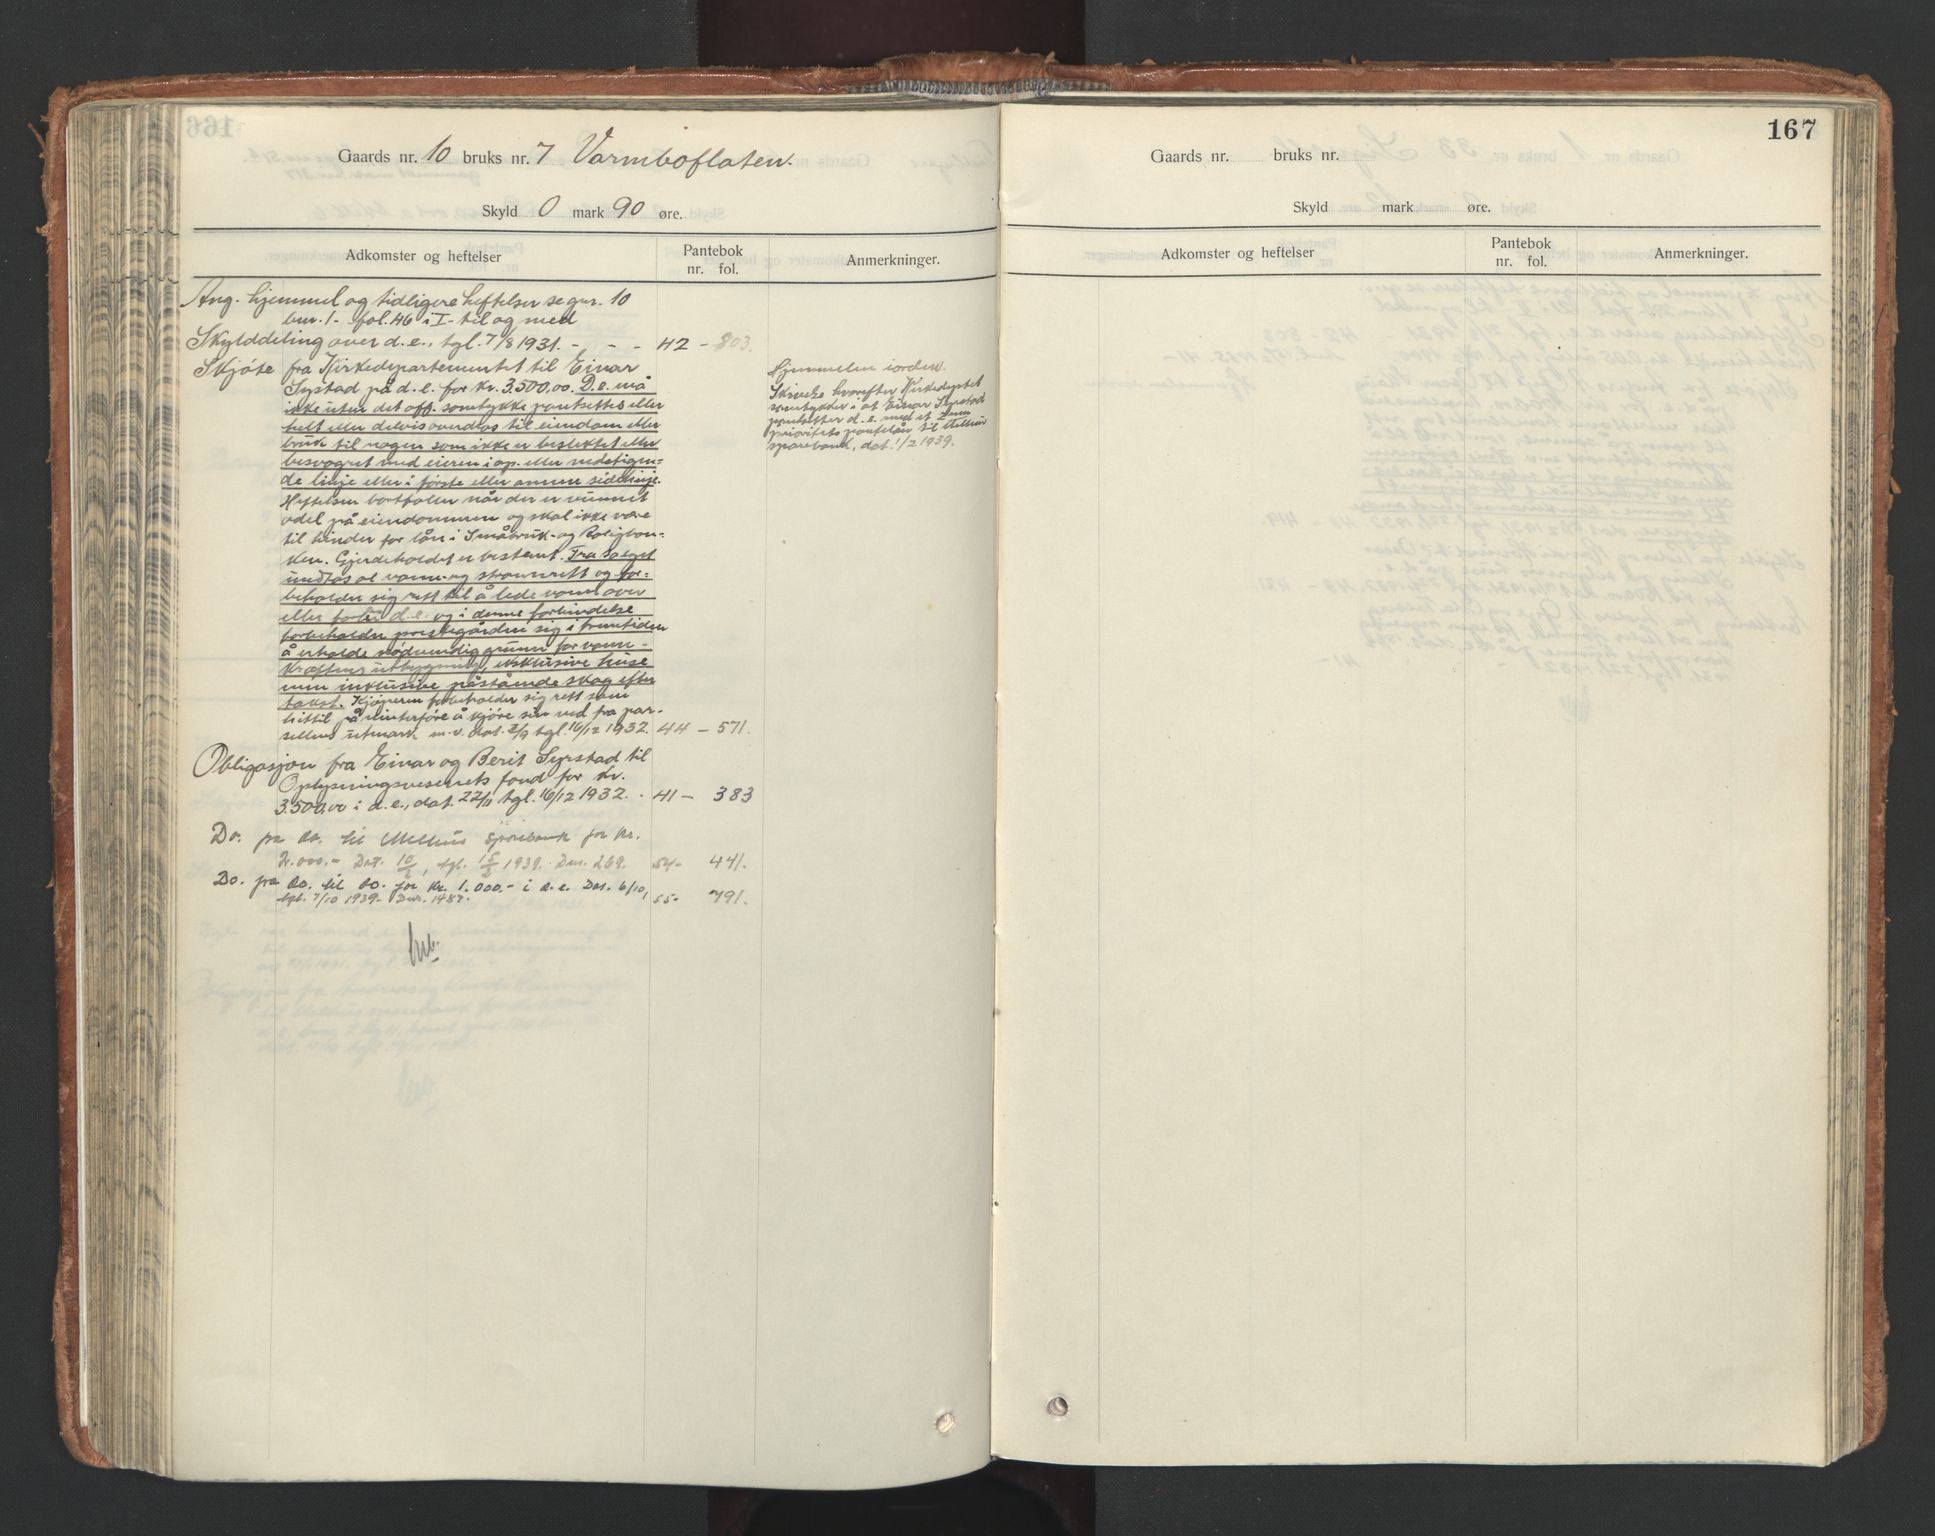 Gaards nr. 10 bruks nr. 7 Varmboflaten.
Skyld 0 mark 90 øre.
Adkomster og heftelser
Pantebok
nr. fol.
Anmerkninger.
Ang. hjemmel og tidligere heftelser se gnr. 10
bnr. 1 - fol. 46 i I - til og med
Skylddeling over d.e., tgl. 7/8 1931. - - - 42 - 803.
Skjøte fra Kirkedepartementet til Einar
Syrstad på d.e. for kr. 3.500,00. D.e. må
ikke uten det off. samtykke pantsettes eller
helt eller delvis overdras til eiendom eller
bruk til nogen som ikke er beslektet eller
besvogret med eieren i op- eller nedstigen=
de linje eller i første eller annen sidelinje.
Heftelsen bortfaller når der er vunnet
odel på eiendommen og skal ikke være
til hinder for lån i Småbruk- og Boligban-
ken. Gjerdeholdet er bestemt. Fra salget
undtas al vann- og strømrett og for=
beholder sig rett til å lede vann over
eller forbi d.e. og i denne forbindelse
forbeholder prestegården sig i fremtiden
å erholde nødvendig grunn for vann-
kraftens utbygning, eksklusive huse
men inklusive påstående skog efter
takst. Kjøperen forbeholder sig rett som
hittil på vinterføre å kjøre sin ved fra par-
sellens utmark m.v. dat. 2/9 tgl. 16/12 1932. 44 - 571.
Obligasjon fra Einar og Berit Syrstad til
Oplysningsvesenets fond for kr.
3.500,00 i d.e., dat. 22/11 tgl. 16/12 1932. - 41 - 383
Do. fra do. til Melhus sparebank for kr.
2.000.- Dat. 10/2, tgl. 15/2 1939. Dnr. 269. 54- 441.
Do. fra do. til do. for kr. 1.000.- i d.e. Dat. 6/10,
tgl. 7/10 1939. Dnr. 1487. 55- 791.
Hjemmelen i orden.
Skrivelse hvorefter Kirkedeptet
samtykker i at Einar Syrstad
pantsetter d.e. med et 2nen
prioritets pantelån til Melhus
sparebank, dat. 1/2 1939.
167
Gaards nr. bruks nr.
Skyld mark øre.
Adkomster og heftelser
Pantebok
nr. fol.
Anmerkninger.